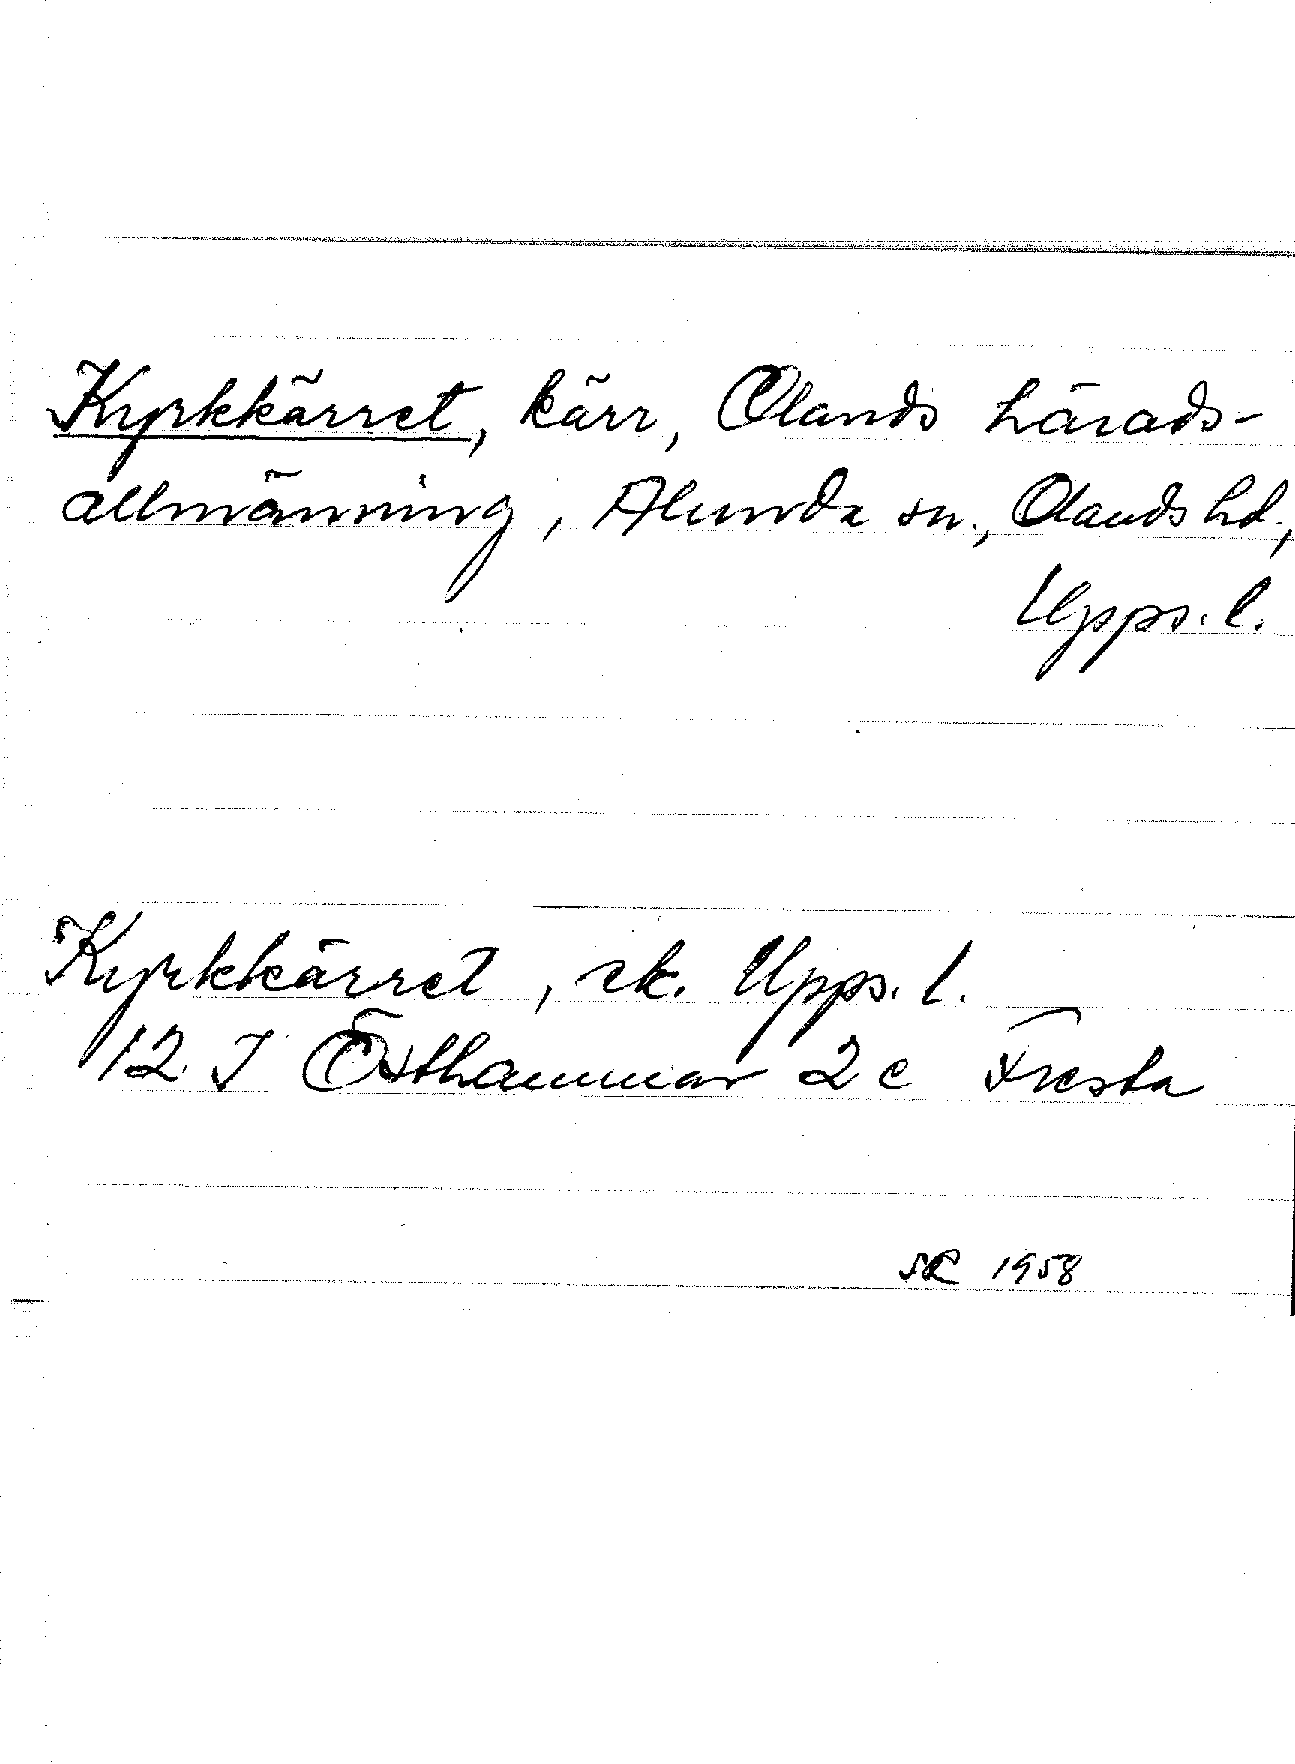 Kyrkkärret, kärr, Olands härads-
allmänning, Alunda sn., Olands hd.,
Upps. l.
Kyrkkärret, ek. Upps. l.
12 I Östhammar 2 c Fresta
1958